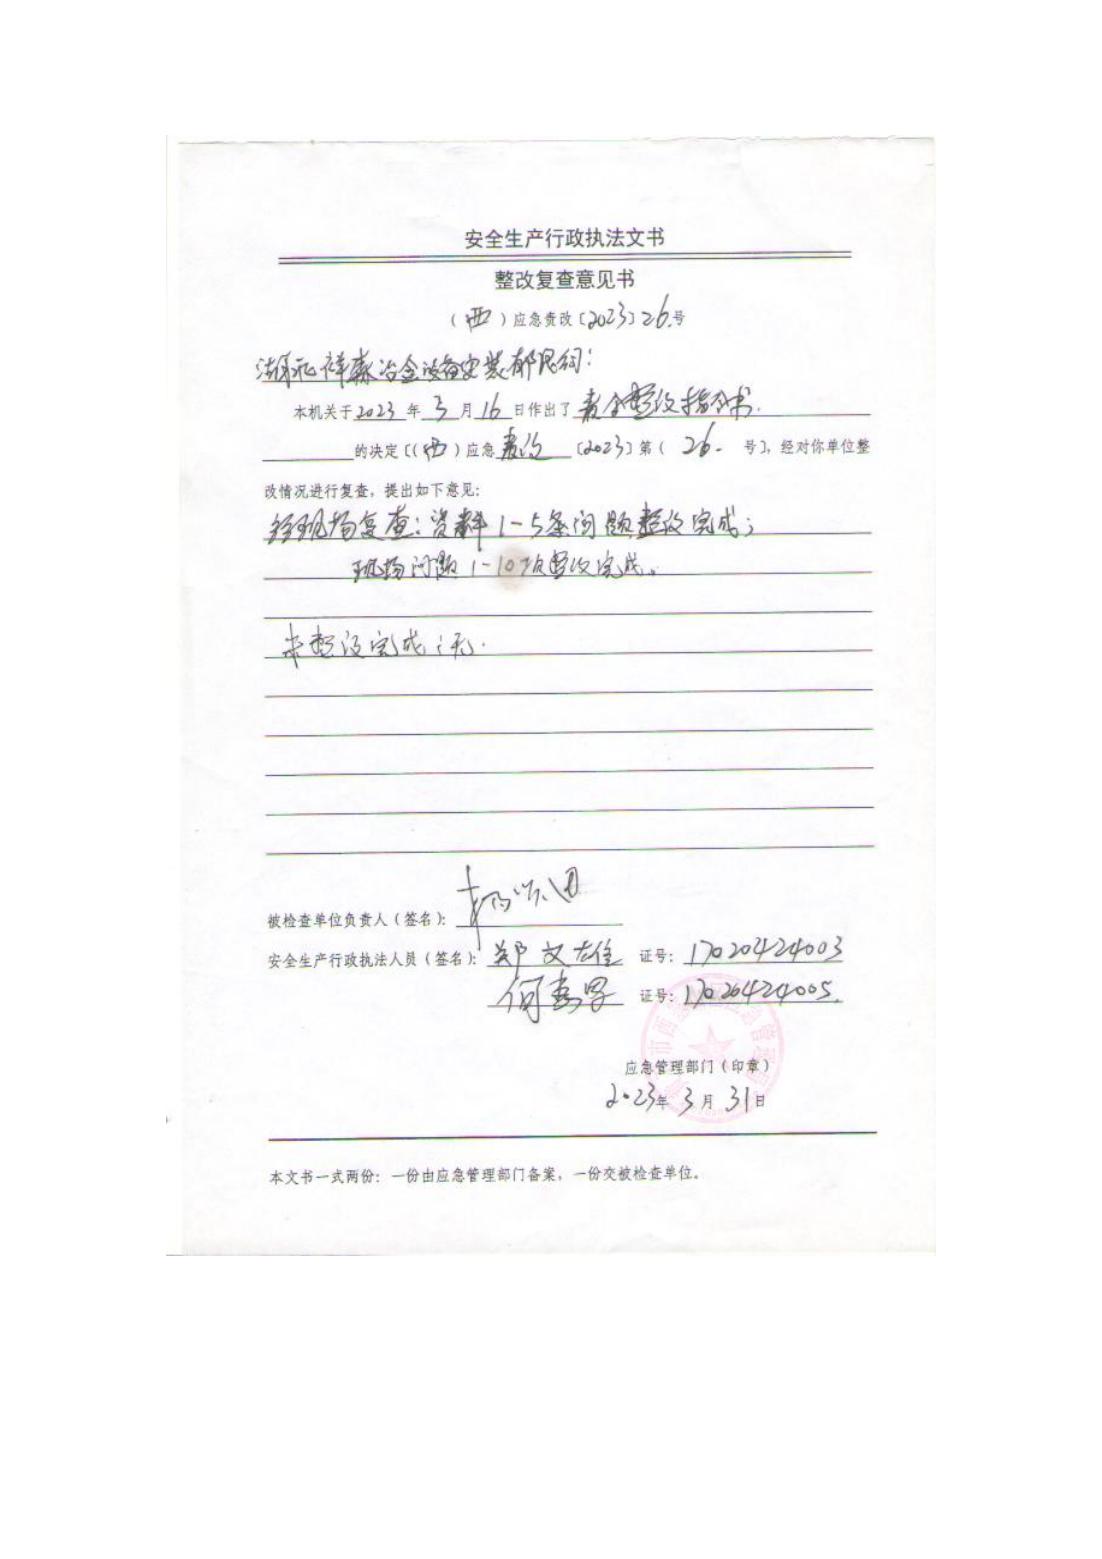 安全生产行政执法文书
整改复查意见书
（西）应急责改〔2023〕26号
祥森冶金设备安装有限公司：
本机关于2023年3月16日作出了责令整改指令书
的决定〔（西）应急责改〔2023〕第（26 号〕，经对你单位整
改情况进行复查，提出如下意见：
经现场复查：资料1-5条问题整改完成；
现场问题1-10项整改完成。
未整改完成：无.
被检查单位负责人（签名）：
安全生产行政执法人员（签名）：郑文雄 证号：17020424003
何 证号：17020424005.
应急管理部门（印章）
2023年3月31日
本文书一式两份：一份由应急管理部门备案，一份交被检查单位。